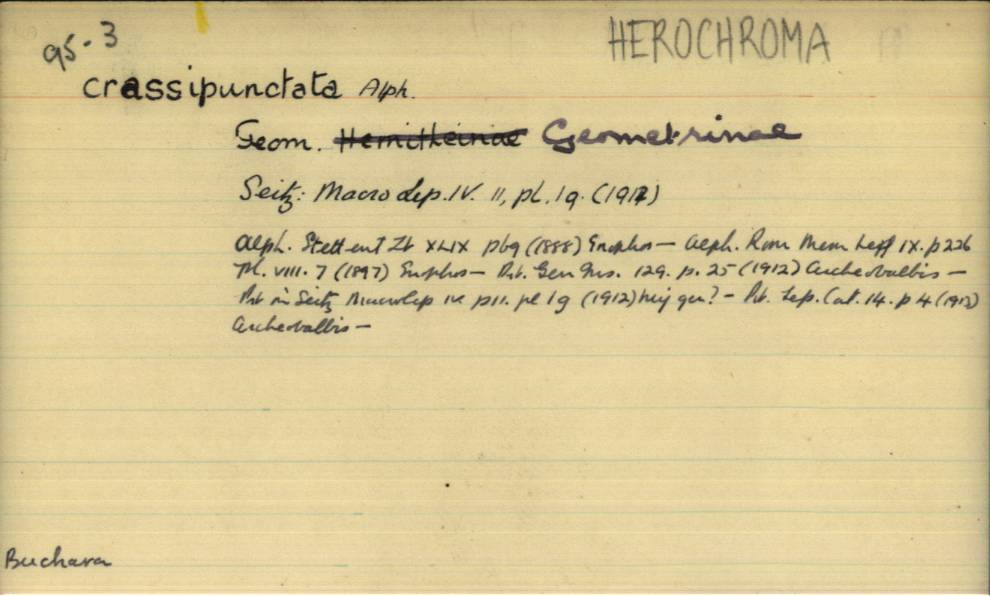 95-3 HEROCHROMA
crassipunctata Alph.
Geom. Hemitheinae Geometrinae
Seitz: Macro Lep. IV. 11, pl. 1g. (1912)
Alph. Stett ent Zt XLIX p69 (1888) Gnophos — Alph. Rom Mem Lep IX. p226
Pl. VIII. 7 (1897) Gnophos — Prt. Gen Ins. 129. p. 25 (1912) Archeobalbis —
Prt in Seitz MacroLep IV p11. pl 1g (1912) huj gen? — Prt. Lep. Cat. 14. p 4 (1913)
Archeobalbis —
Buchara